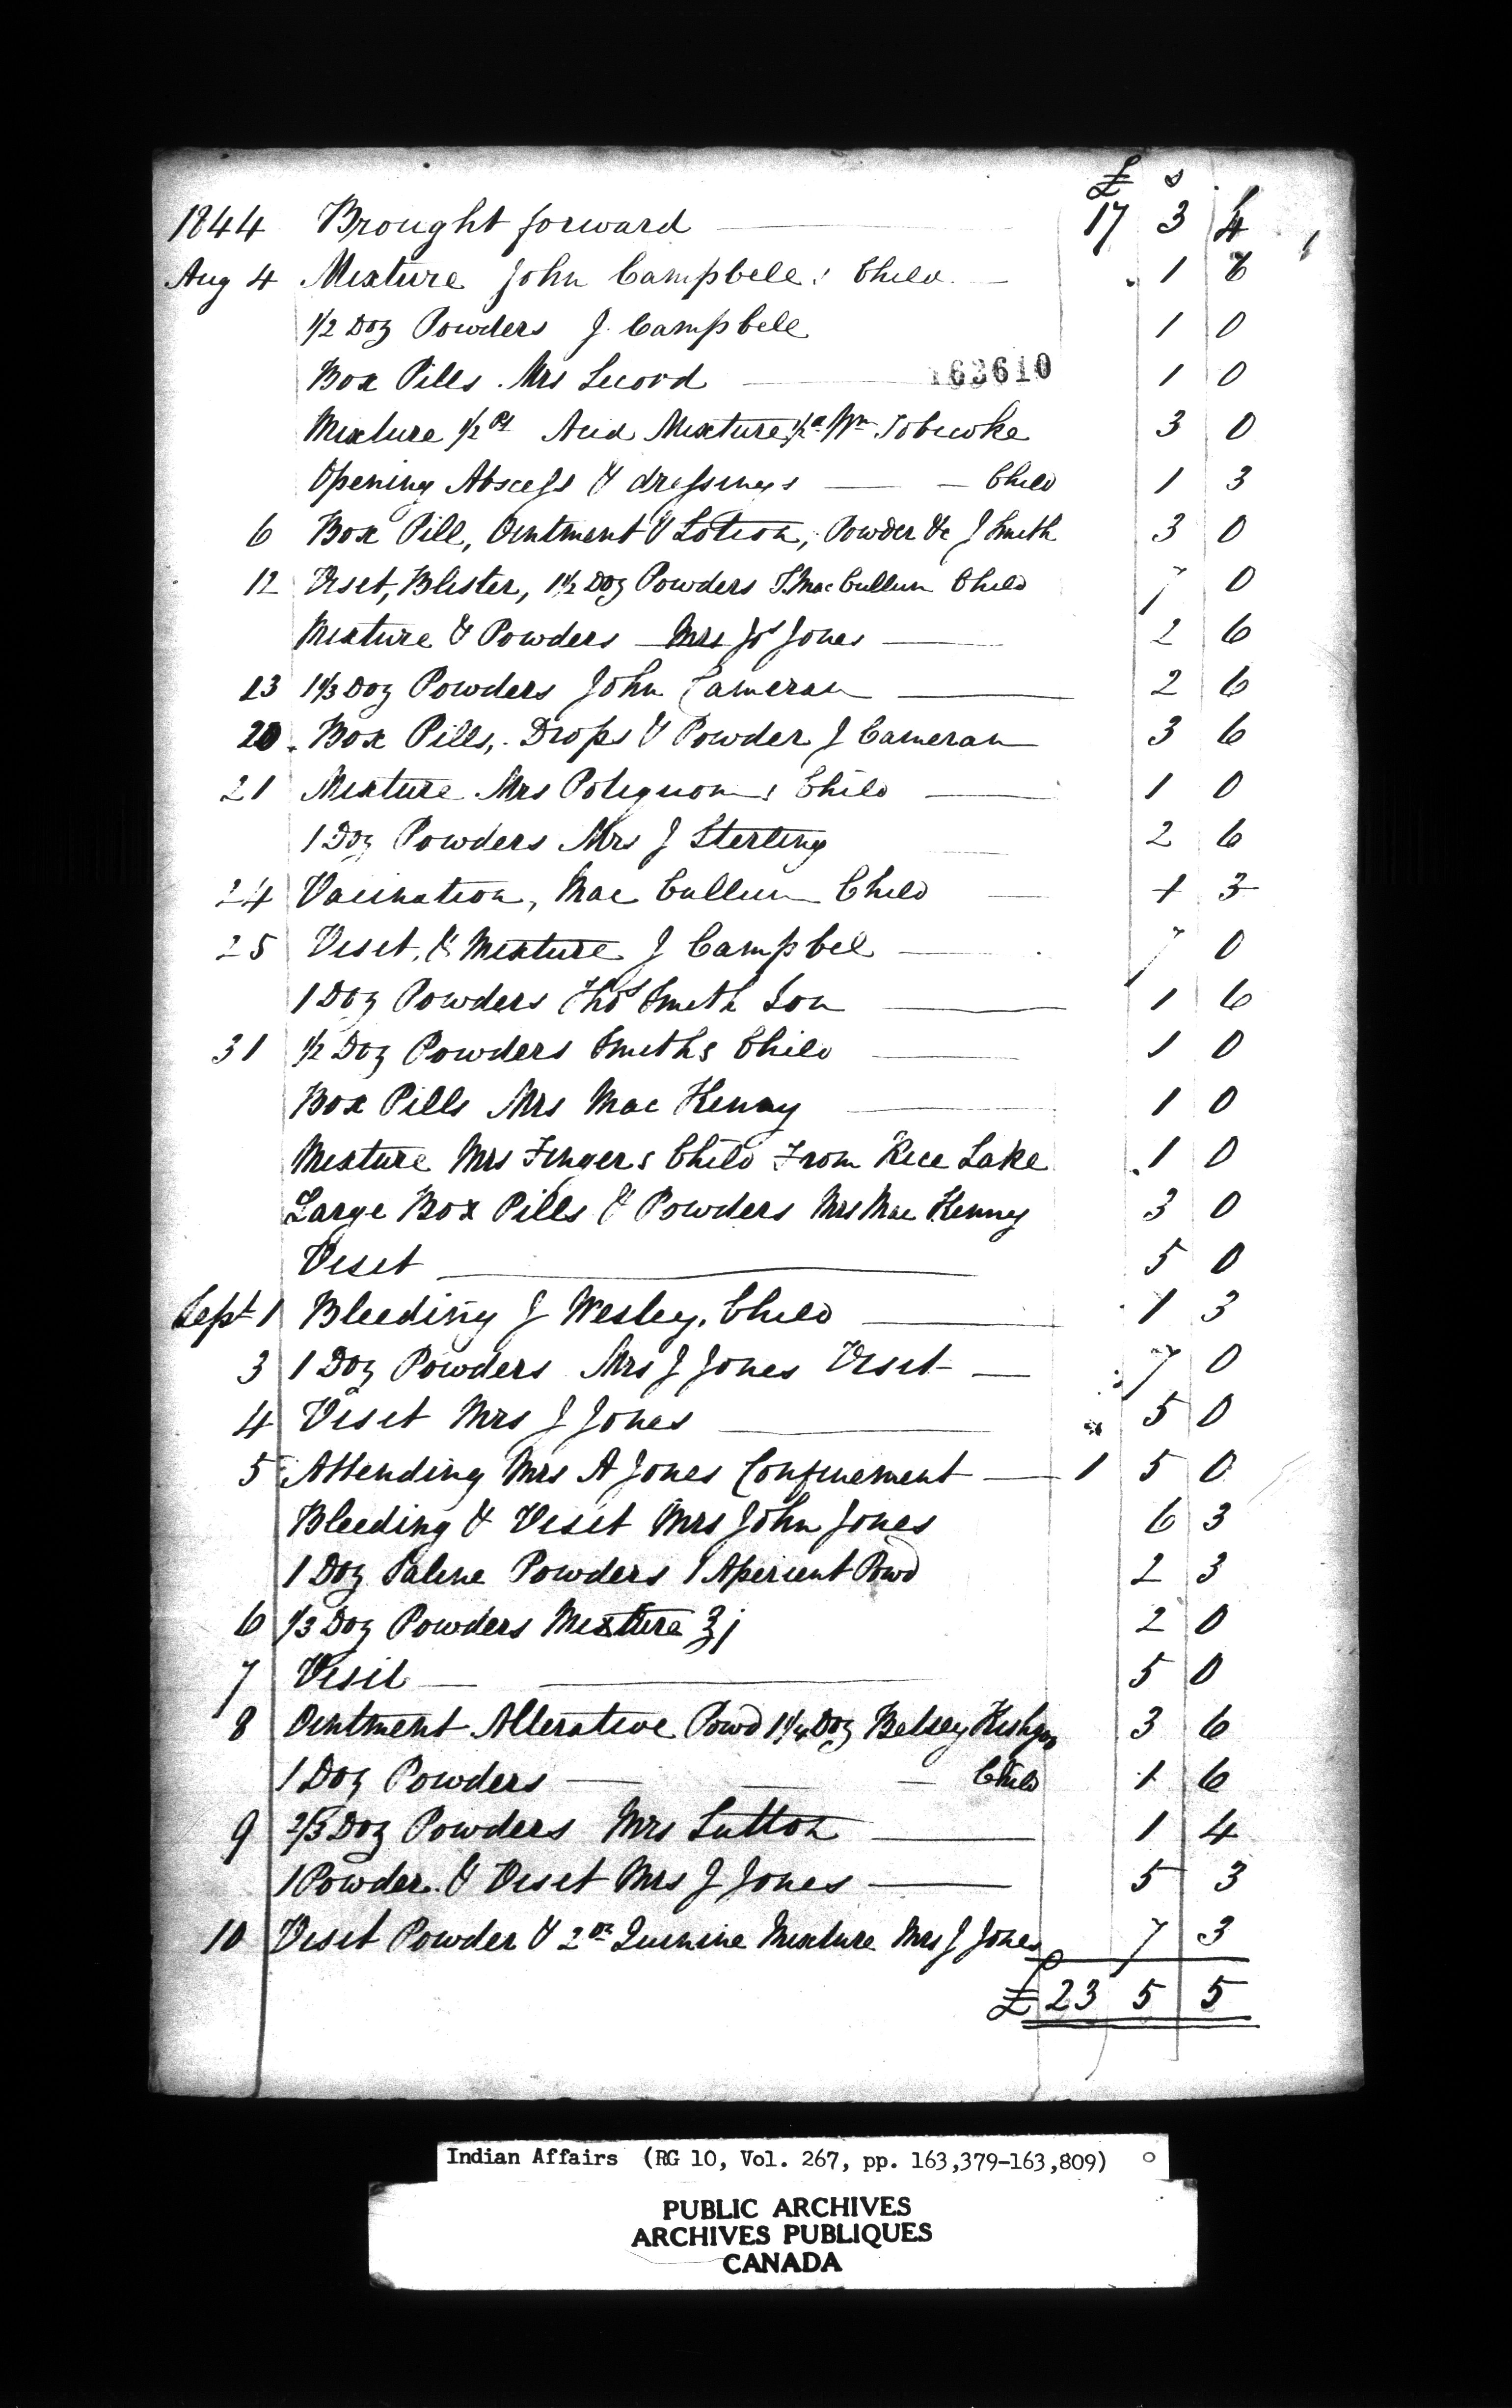 £ s
1844 Brought forward 17 3 4
Aug 4 Mixture John Campbells Child 1 6
1/2 Doz Powders J. Campbell 1 0
Box Pills Mrs Secord 1 0
163610
Mixture 1/2 Pt Acid Mixture Wm 3 0
Opening Abscess & dressings Child 1 3
6 Box Pill, Ointment & Lotion, Powder &c J Smith 3 0
12 Viset, Blister, 1 1/2 Doz Powders T. Mac Cullum Child 7 0
Mixture & Powders Mrs Js Jones 2 6
13 1 1/3 Doz Powders John Cameran 2 6
20 Box Pills, Drops & Powder J Cameran 3 6
21 Mixture Mrs Child 1 0
1 Doz Powders Mrs J Sterling 2 6
24 Vacination, Mac Cullum Child 1 3
25 Viset, & Mixture J Campbel 7 0
1 Doz Powders Thos Smith Son 1 6
31 1/2 Doz Powders Smiths Child 1 0
Box Pills Mrs Mac Kenny 1 0
Mixture Mrs Fingers Child From Rice Lake 1 0
Large Box Pills & Powders Mrs Mac Kenny 3 0
Viset 5 0
Sept 1 Bleeding J Wesley, Child 1 3
3 1 Doz Powders Mrs J Jones Viset 7 0
4 Viset Mrs J Jones 5 0
5 Attending Mrs A Jones Confinement 1 5 0
Bleeding & Viset Mrs John Jones 6 3
1 Doz Saline Powders 1 Aperient Powd 2 3
6 1/3 Doz Powders Mixture ʒj 2 0
7 Visit 5 0
8 Ointment Alterative Powd 1 1/4 Doz Betsey 3 6
1 Doz Powders Child 1 6
9 2/3 Doz Powders Mrs Sutton 1 4
1 Powder & Viset Mrs J Jones 5 3
10 Viset Powder & 2 oz Quinine Mixture Mrs J Jones 7 3
£ 23 5 5
Indian Affairs (RG 10, Vol. 267, pp. 163,379-163,809)
PUBLIC ARCHIVES
ARCHIVES PUBLIQUES
CANADA